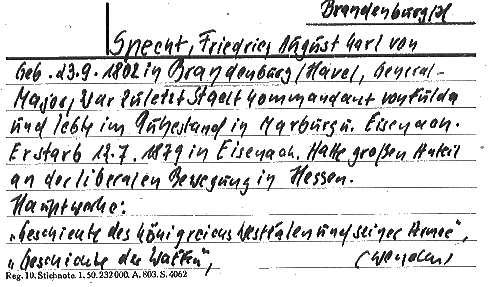 Brandenburg/H
Specht, Friedrich August Karl von
Geb. 23.9.1802 in Brandenburg/Havel, General-
Major, war zuletzt Stadtkommandant von Fulda
und lebte im Ruhestand in Marburg u. Eisenach.
Er starb 12.7.1879 in Eisenach. Hatte großen Anteil
an der liberalen Bewegung in Hessen.
Hauptwerke:
„Geschichte des Königreichs Westfalen und seiner Armee",
„Geschichte der Waffen",
Reg. 10. Stichnote 1. 50. 232000. A. 803. S. 4062